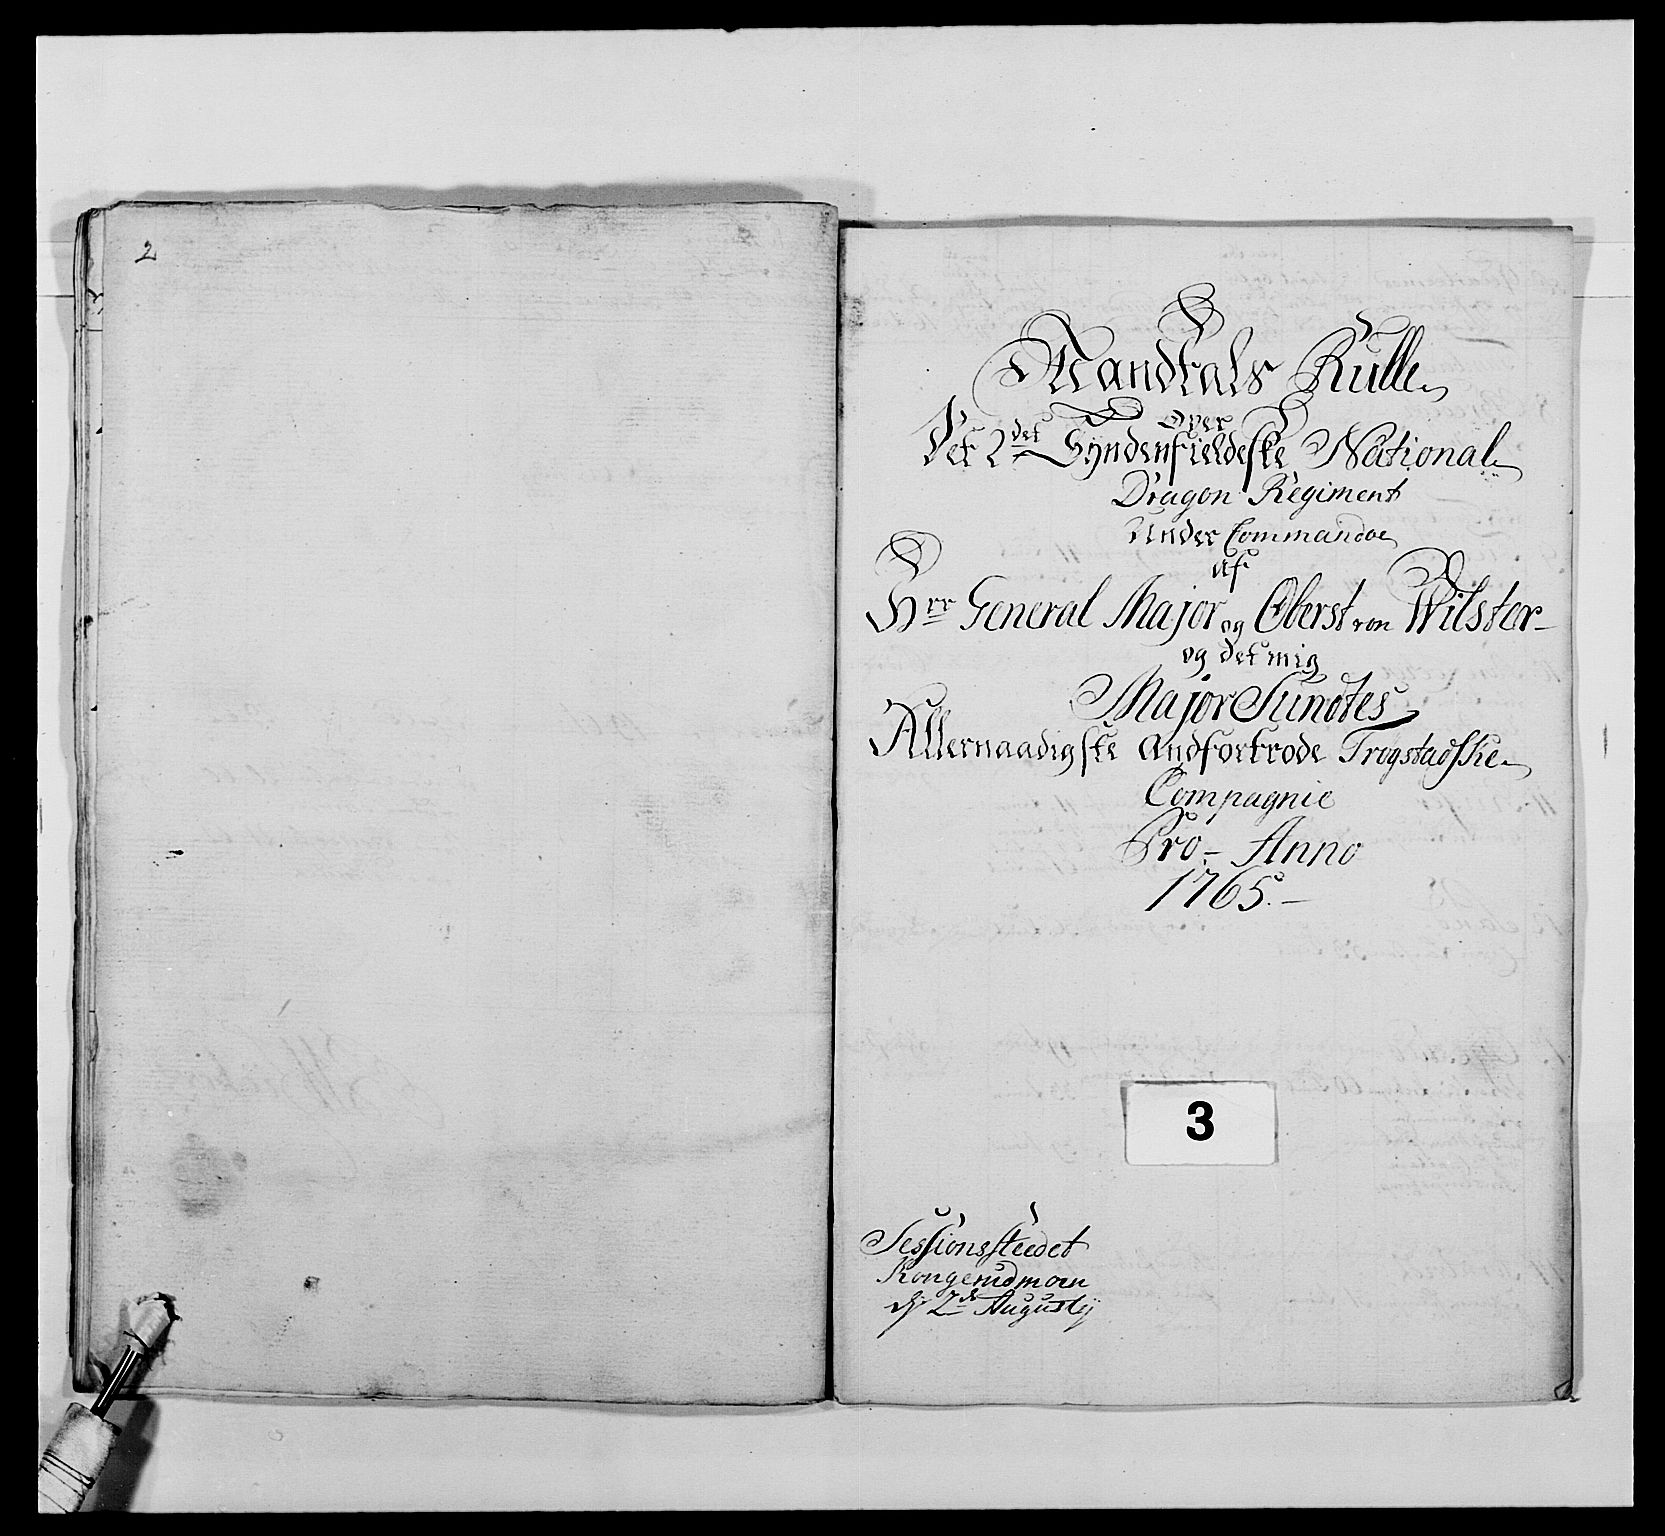 2
Mandtals Rulle
Over
Det 2det Syndenfieldske National
Dragon Regiment
Under Commandoe
af
Hrr General Major og Oberst von Wilster
og det mig
Major Sundtes
Allernaadigste andfortrode Trogstadske
Compagnie
Pro Anno
1765.
3
Sessionsstedet
Kongerudmoen
d. 2de Augustij